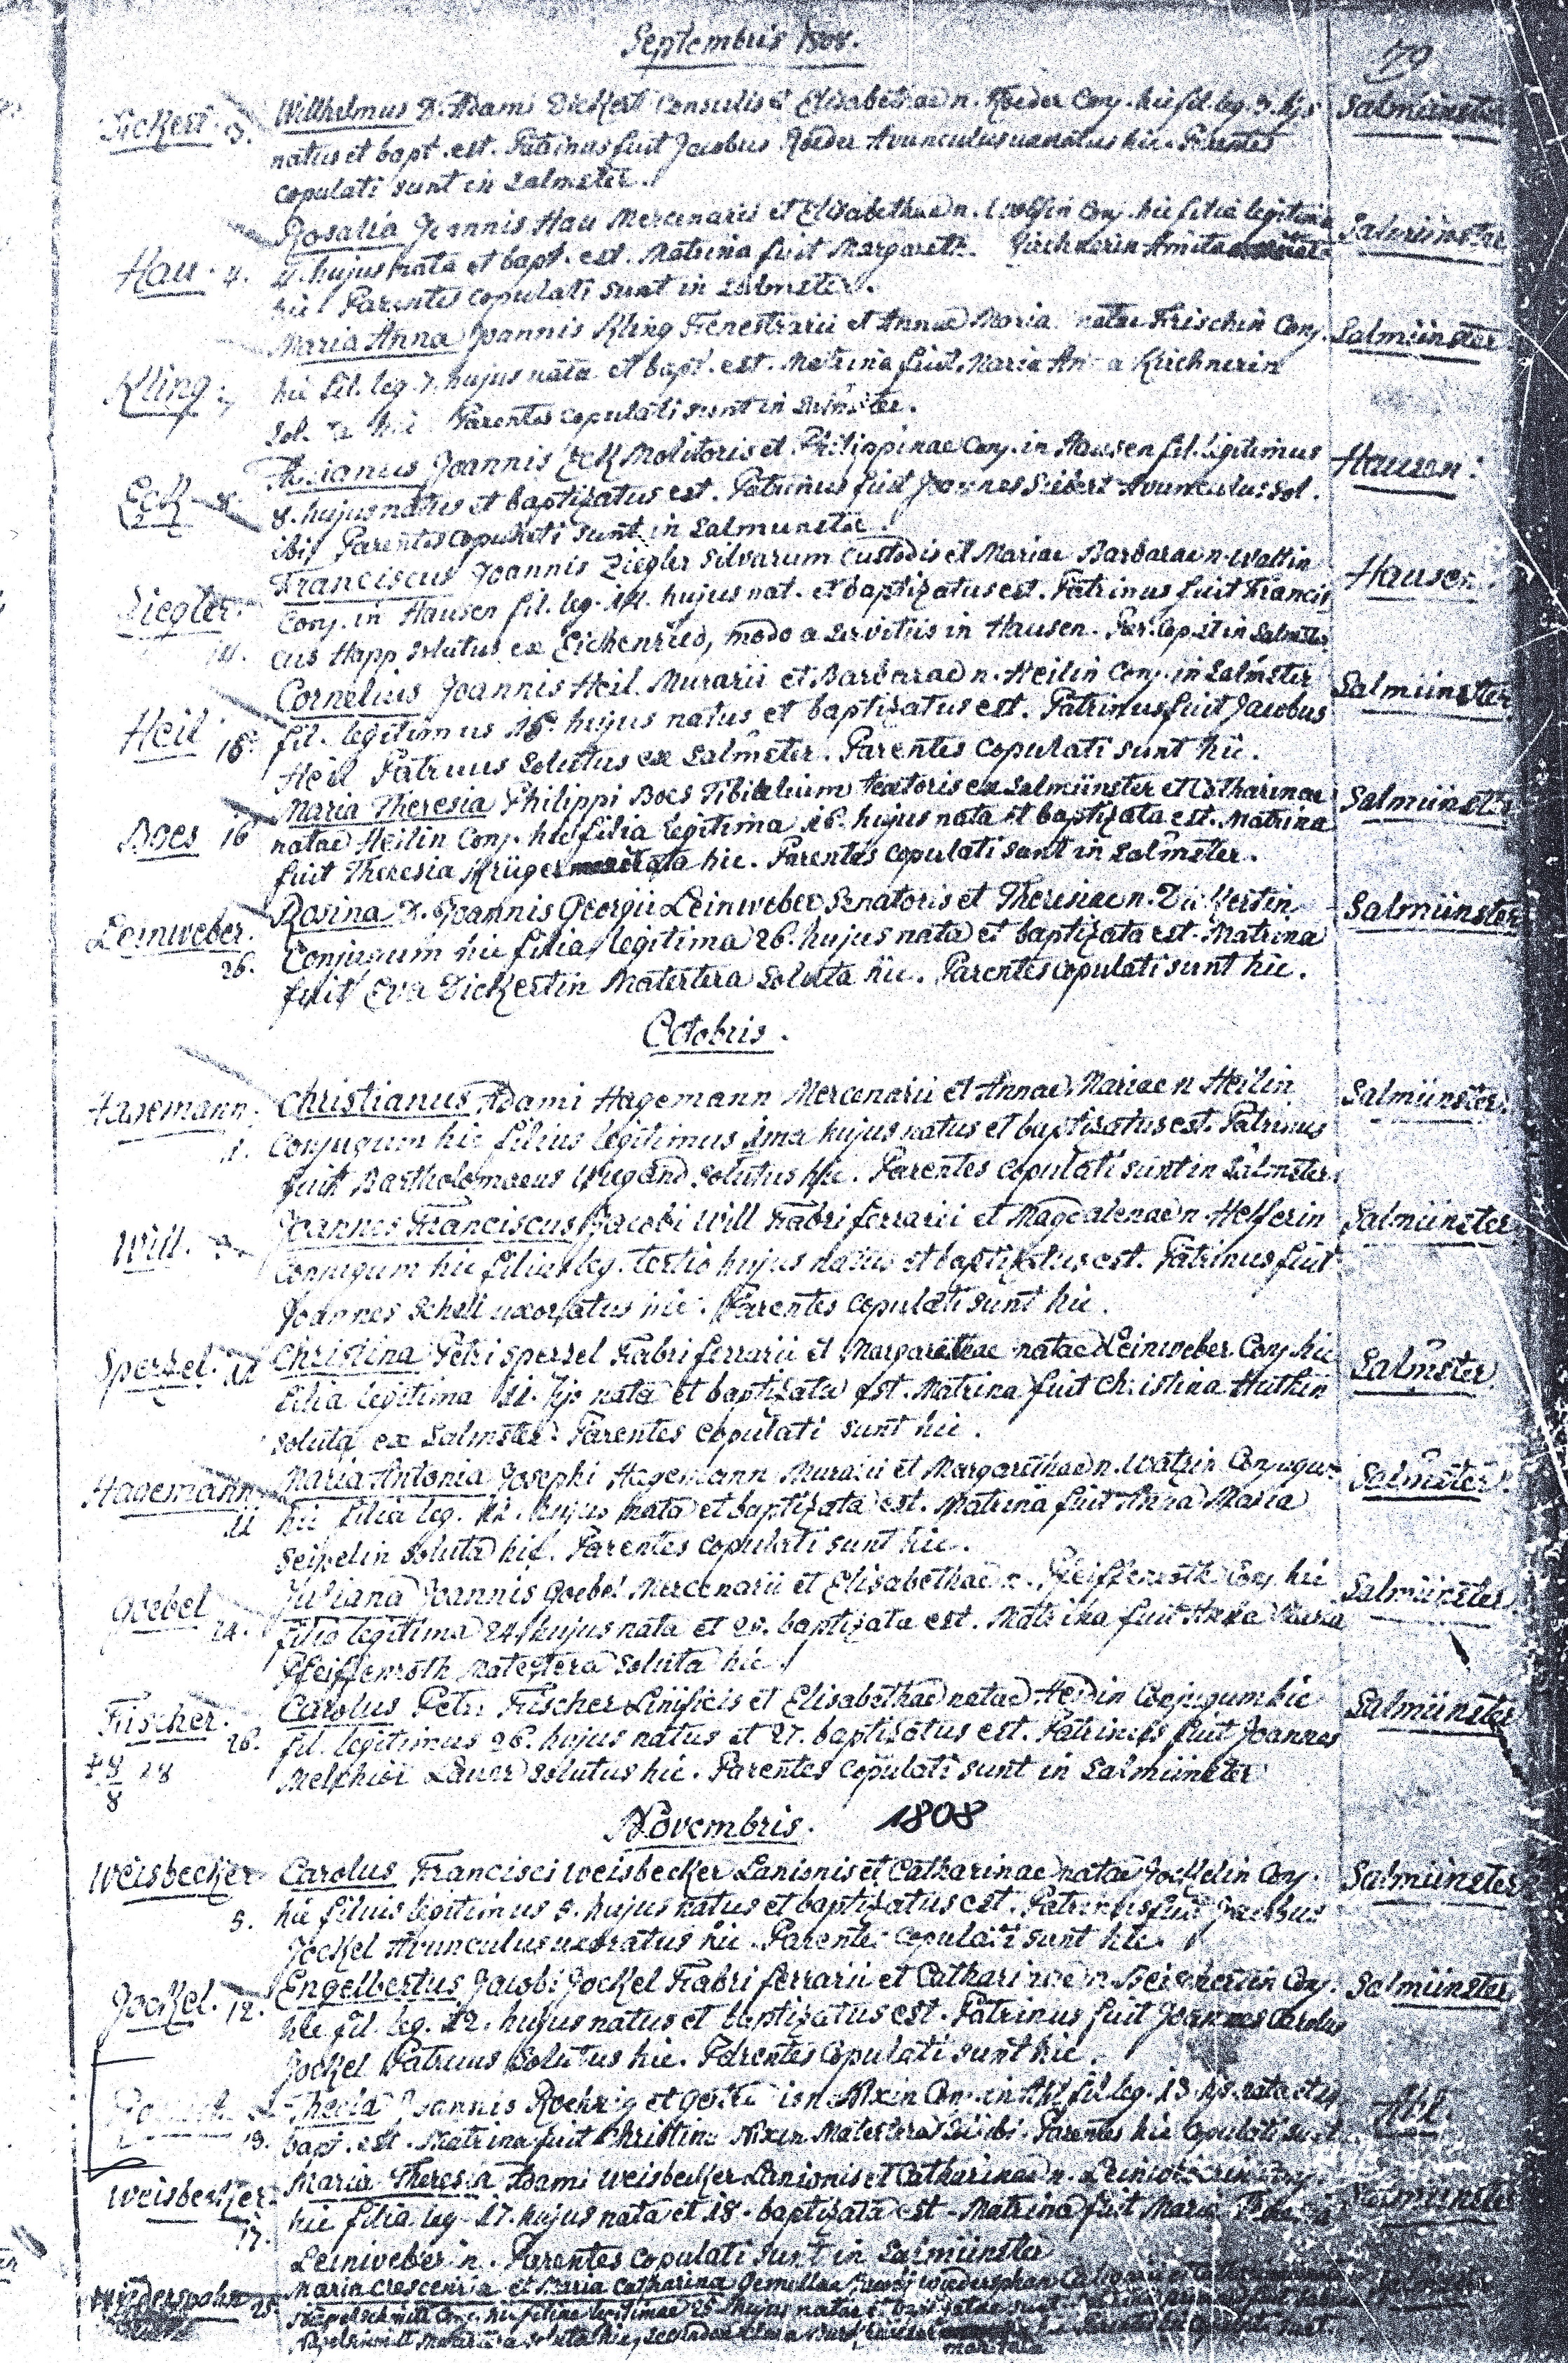 Septembris 1808.
79
Dickert. 3. Wilhelmus D. Adami Dickert Consulis et Elisabethae n. Roeder Conj. hic fil. leg. 3. hjs Salmünster
natus et bapt. est. Patrinus fuit Jacobus Roeder Avunculus uxoratus hic. Parentes
copulati sunt in Salmster.
Rosalia Joannis Hau Mercenarii et Elisabethae n. Conj. hic filia legitima Salmünster
Hau. 4. 4. hujus nata et bapt. est. Matrina fuit Margareth. Kirchnerin Amita
hic Parentes copulati sunt in Salmster.
Maria Anna Joannis Kling Fenestrarii et Annae Maria natae Frischin Conj. Salmünster
Kling. 7 hic fil. leg. 7. hujus nata et bapt. est. Matrina fuit Maria Anna Kirchnerin
hic Parentes copulati sunt in Salmster.
Joannis Eck Molitoris et Philippinae Conj. in Hausen fil. legitimus Hausen.
Eck 8. 8. hujus natus et baptizatus est. Patrinus fuit Joannes Siebert Avunculus sol.
ibi Parentes copulati sunt in Salmunster.
Franciscus Joannis Ziegler Silvarum Custodis et Mariae Barbarae n. Hausen
Ziegler. 14. Conj. in Hausen fil. leg. 14. hujus nat. et baptizatus est. Patrinus fuit Francis
cus Happ solutus ex Eickenried, modo a servitiis in Hausen. Par. cop. st in Salmster
Cornelius Joannis Heil Murarii et Barbarae n. Heilin Conj. in Salmster Salmünster
Heil 15. fil. legitimus 15. hujus natus et baptizatus est. Patrinus fuit Jacobus
Heil Patruus solutus ex Salmster. Parentes copulati sunt hic.
Maria Theresia Philippi Boes Tibialium textoris ex Salmünster et Catharinae Salmünster
Boes 16 natae Heilin Conj. hic filia legitima 16. hujus nata et baptizata est. Matrina
fuit Theresia Krüger maritata hic. Parentes copulati sunt in Salmster.
Leinweber. 26. Rosina D. Joannis Georgii Leinweber Senatoris et Theresiae n. Dickertin Salmünster
Conjugum hic filia legitima 26. hujus nata et baptizata est. Matrina
fuit Eva Dickertin Matertera soluta hic. Parentes copulati sunt hic.
Octobris.
Hagemann. 1. Christianus Adami Hagemann Mercenarii et Annae Mariae n Heilin Salmünster.
Conjugum hic filius legitimus 1ma hujus natus et baptisatus est. Patrinus
fuit Bartholomaeus Wiegand solutus hic. Parentes copulati sunt in Salmster.
Will. 3. Joannes Franciscus Jacobi Will Fabri ferrarii et Magdalenae n. Helferin Salmünster
Conjugum hic filius leg. tertio hujus natus et baptizatus est. Patrinus fuit
Joannes Schell uxoratus hic. Parentes copulati sunt hic.
Sperzel. 11 Christina Petri Sperzel Fabri ferrarii et Margarethae natae Leinweber Conj. hic Salmster
filia legitima 11. hjs nata et baptizata est. Matrina fuit Christina Huthin
soluta ex Salmster. Parentes copulati sunt hic.
Hagemann. Maria Antonia Josephi Hagemann Murarii et Margarethae n. Conjugum Salmster.
hic filia leg. hujus nata et baptizata est. Matrina fuit Anna Maria
Seipelin soluta hic. Parentes copulati sunt hic.
Goebel 24. Juliana Joannis Goebel Mercenarii et Elisabethae n. Pfeiffenroth Conj. hic Salmünster
filia legitima 24. hujus nata et baptizata est. Matrina fuit Anna Maria
Pfeiffenroth Matertera soluta hic
Fischer. 26. Carolus Petri Fischer Linificis et Elisabethae natae Conjugum hic Salmünster
fil. legitimus 26. hujus natus et 27. baptizatus est. Patrinus fuit Joannes
Melchior Lauer solutus hic. Parentes copulati sunt in Salmünster
Novembris. 1808
Weisbecker 5. Carolus Francisci Weisbecker Lanionis et Catharinae natae Jockelin Conj. Salmünster
hic filius legitimus 5. hujus natus et baptizatus est. Patrinus fuit Jacobus
Jockel Avunculus uxoratus hic. Parentes copulati sunt hic.
Jockel. 12. Engelbertus Jacobi Jockel Fabri ferrarii et Catharinae n. Conj. Salmünster
hic fil. leg. 12. hujus natus et baptizatus est. Patrinus fuit Joannes Carolus
Jockel Patruus solutus hic. Parentes copulati sunt hic.
13. Thecla Joannis Roehrig et n. Nixin Conj. in Ahl fil. leg. 13. hjs. nata et 14 Ahl.
bapt. est. Matrina fuit Christina Nixin Matertera ibi. Parentes hic copulati sunt
Weisbecker. 17. Maria Theresia Adami Weisbecker Lanionis et Catharinae n. Leinweberin Conj. Salmünster
hic filia leg. 17. hujus nata et 18. baptizata est. Matrina fuit Maria Theresia
Leinweberin. Parentes copulati sunt in Salmünster
Wiederspahn 25. Maria Crescentia et Maria Catharina Gemellae
hic filiae legitimae 25. hujus natae et baptizatae sunt.
soluta hic,
maritata